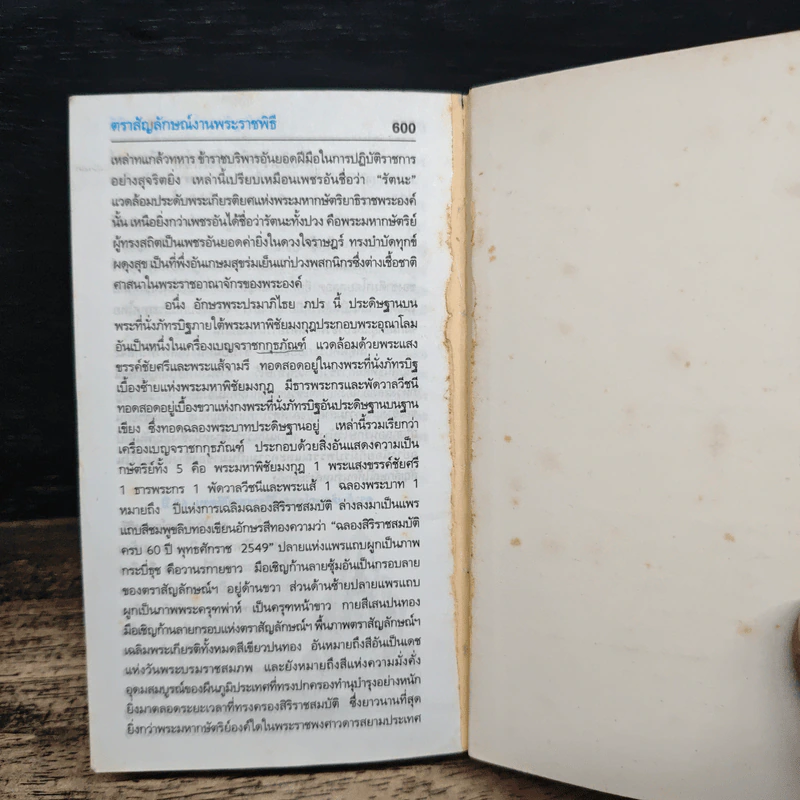 ตราสัญลักษณ์งานพระราชพิธี 600
เหล่าทแกล้วทหาร ข้าราชบริพารอันยอดฝีมือในการปฏิบัติราชการ
อย่างสุจริตยิ่ง เหล่านี้เปรียบเหมือนเพชรอันชื่อว่า “รัตนะ”
แวดล้อมประดับพระเกียรติยศแห่งพระมหากษัตริยาธิราชพระองค์
นั้น เหนือยิ่งกว่าเพชรอันได้ชื่อว่ารัตนะทั้งปวง คือพระมหากษัตริย์
ผู้ทรงสถิตเป็นเพชรอันยอดค่ายิ่งในดวงใจราษฎร์ ทรงบำบัดทุกข์
ผดุงสุข เป็นที่พึ่งอันเกษมสุขร่มเย็นแก่ปวงพสกนิกรซึ่งต่างเชื้อชาติ
ศาสนาในพระราชอาณาจักรของพระองค์
อนึ่ง อักษรพระปรมาภิไธย ภปร นี้ ประดิษฐานบน
พระที่นั่งภัทรบิฐภายใต้พระมหาพิชัยมงกุฎประกอบพระอุณาโลม
อันเป็นหนึ่งในเครื่องเบญจราชกกุธภัณฑ์ แวดล้อมด้วยพระแสง
ขรรค์ชัยศรีและพระแส้จามรี ทอดสอดอยู่ในกงพระที่นั่งภัทรบิฐ
เบื้องซ้ายแห่งพระมหาพิชัยมงกุฎ มีธารพระกรและพัดวาลวีชนี
ทอดสอดอยู่เบื้องขวาแห่งกงพระที่นั่งภัทรบิฐอันประดิษฐานบนฐาน
เขียง ซึ่งทอดฉลองพระบาทประดิษฐานอยู่ เหล่านี้รวมเรียกว่า
เครื่องเบญจราชกกุธภัณฑ์ ประกอบด้วยสิ่งอันแสดงความเป็น
กษัตริย์ทั้ง 5 คือ พระมหาพิชัยมงกุฎ 1 พระแสงขรรค์ชัยศรี
1 ธารพระกร 1 พัดวาลวีชนีและพระแส้ 1 ฉลองพระบาท 1
หมายถึง ปีแห่งการเฉลิมฉลองสิริราชสมบัติ ล่างลงมาเป็นแพร
แถบสีชมพูขลิบทองเขียนอักษรสีทองความว่า “ฉลองสิริราชสมบัติ
ครบ 60 ปี พุทธศักราช 2549” ปลายแห่งแพรแถบผูกเป็นภาพ
กระบี่ธุช คือวานรกายขาว มือเชิญก้านลายซุ้มอันเป็นกรอบลาย
ของตราสัญลักษณ์ฯ อยู่ด้านขวา ส่วนด้านซ้ายปลายแพรแถบ
ผูกเป็นภาพพระครุฑพ่าห์ เป็นครุฑหน้าขาว กายสีเสนปนทอง
มือเชิญก้านลายกรอบแห่งตราสัญลักษณ์ฯ พื้นภาพตราสัญลักษณ์ฯ
เฉลิมพระเกียรติทั้งหมดสีเขียวปนทอง อันหมายถึงสีอันเป็นเดช
แห่งวันพระบรมราชสมภพ และยังหมายถึงสีแห่งความมั่งคั่ง
อุดมสมบูรณ์ของผืนภูมิประเทศที่ทรงปกครองทำนุบำรุงอย่างหนัก
ยิ่งมาตลอดระยะเวลาที่ทรงครองสิริราชสมบัติ ซึ่งยาวนานที่สุด
ยิ่งกว่าพระมหากษัตริย์องค์ใดในพระราชพงศาวดารสยามประเทศ